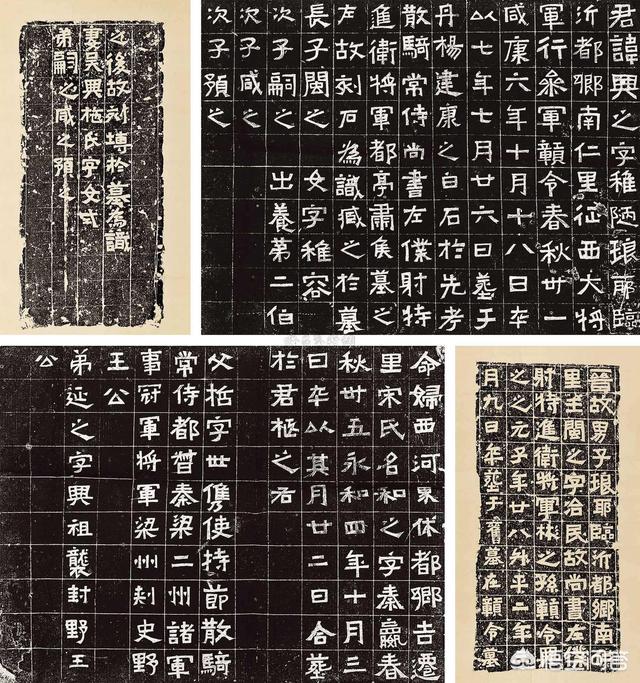 君諱興之字稚陋琅耶臨
沂都鄉南仁里征西大將
軍行參軍贛令春秋卅一
咸康六年十月十八日卒
以七年七月廿六日葬于
丹楊建康之白石於先考
散騎常侍尚書左僕射特
進衛將軍都亭肅侯墓之
左故刻石為識臧之於墓
長子閩之 女字稚容
次子嗣之 出養第二伯
次子咸之
次子預之
命婦西河界休都鄉吉遷
里宋氏名和之字秦嬴春
秋卅五永和四年十月三
日卒以其月廿二日合葬
於君柩之右
父哲字世儁使持節散騎
常侍都督秦梁二州諸軍
事冠軍將軍梁州刺史野
王公
弟延之字興祖襲封野王
公
晉故男子琅耶臨沂都鄉南仁
里王閩之字冶民故尚書左僕
射特進衛將軍彬之孫贛令興
之之元子年廿八升平二年三
月九日卒葬于舊墓在贛令墓
之後故刻塼於墓為識
妻吳興施氏字女式
弟嗣之咸之預之